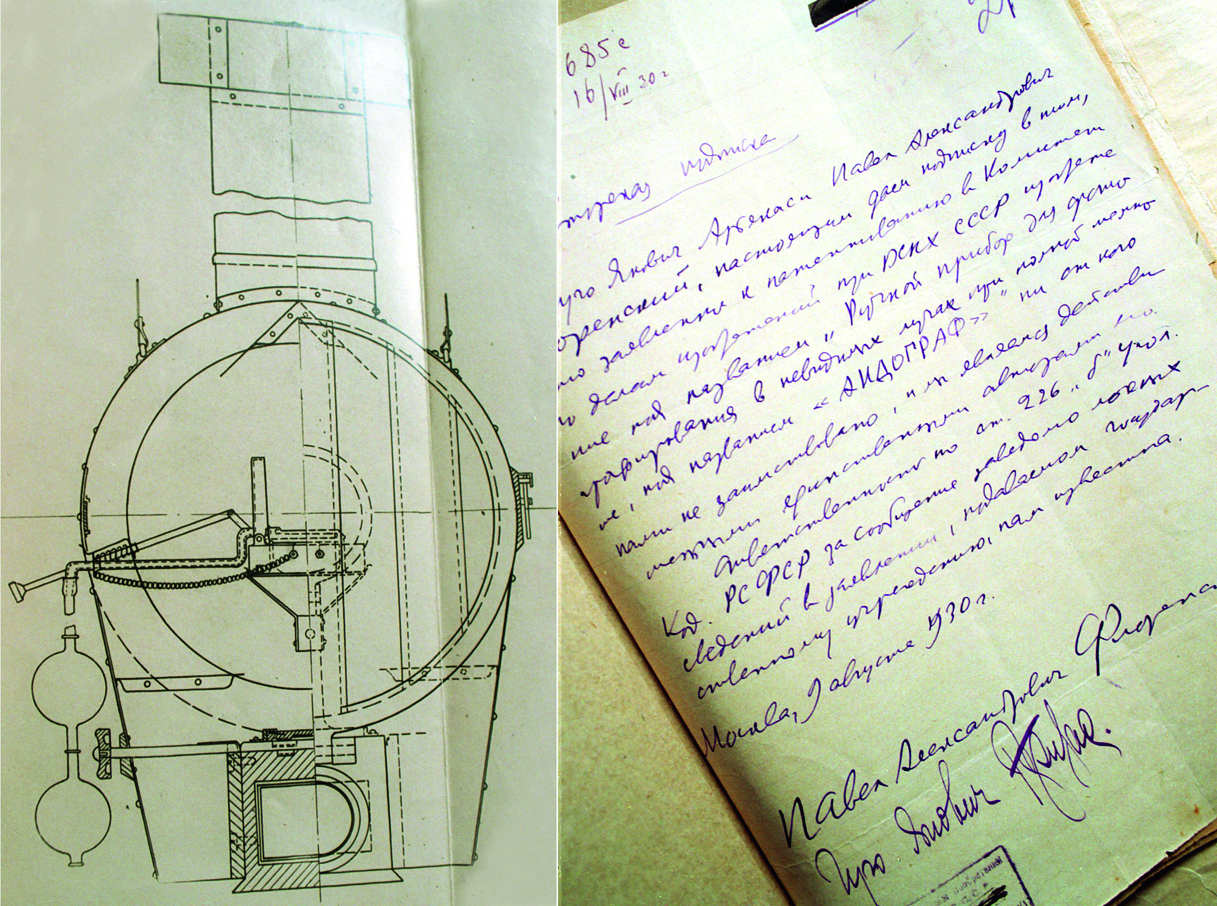 685с
16/VIII 30 г
подписка
Янович Арбенаси Павел Александрович
оренский, настоящим даем подписку в том,
то заявленное к патентованию в Комитет
по делам изобретений при ВСНХ СССР изобрете
ние под названием „Ручной прибор для фото
графирования в невидимых лучах при полной темно
те, под названием «АИДОГРАФ» ни от кого
нами не заимствовано, и мы являемся действи
тельными единственными авторами его.
Ответственность по ст. 226 „б" угол.
Код. РСФСР за сообщение заведомо ложных
сведений в заявлении, подаваемом государ-
ственному учреждению, нам известна.
Москва, 9 августа 1930 г.
Павел Александрович Флоренс
Гуго Янович